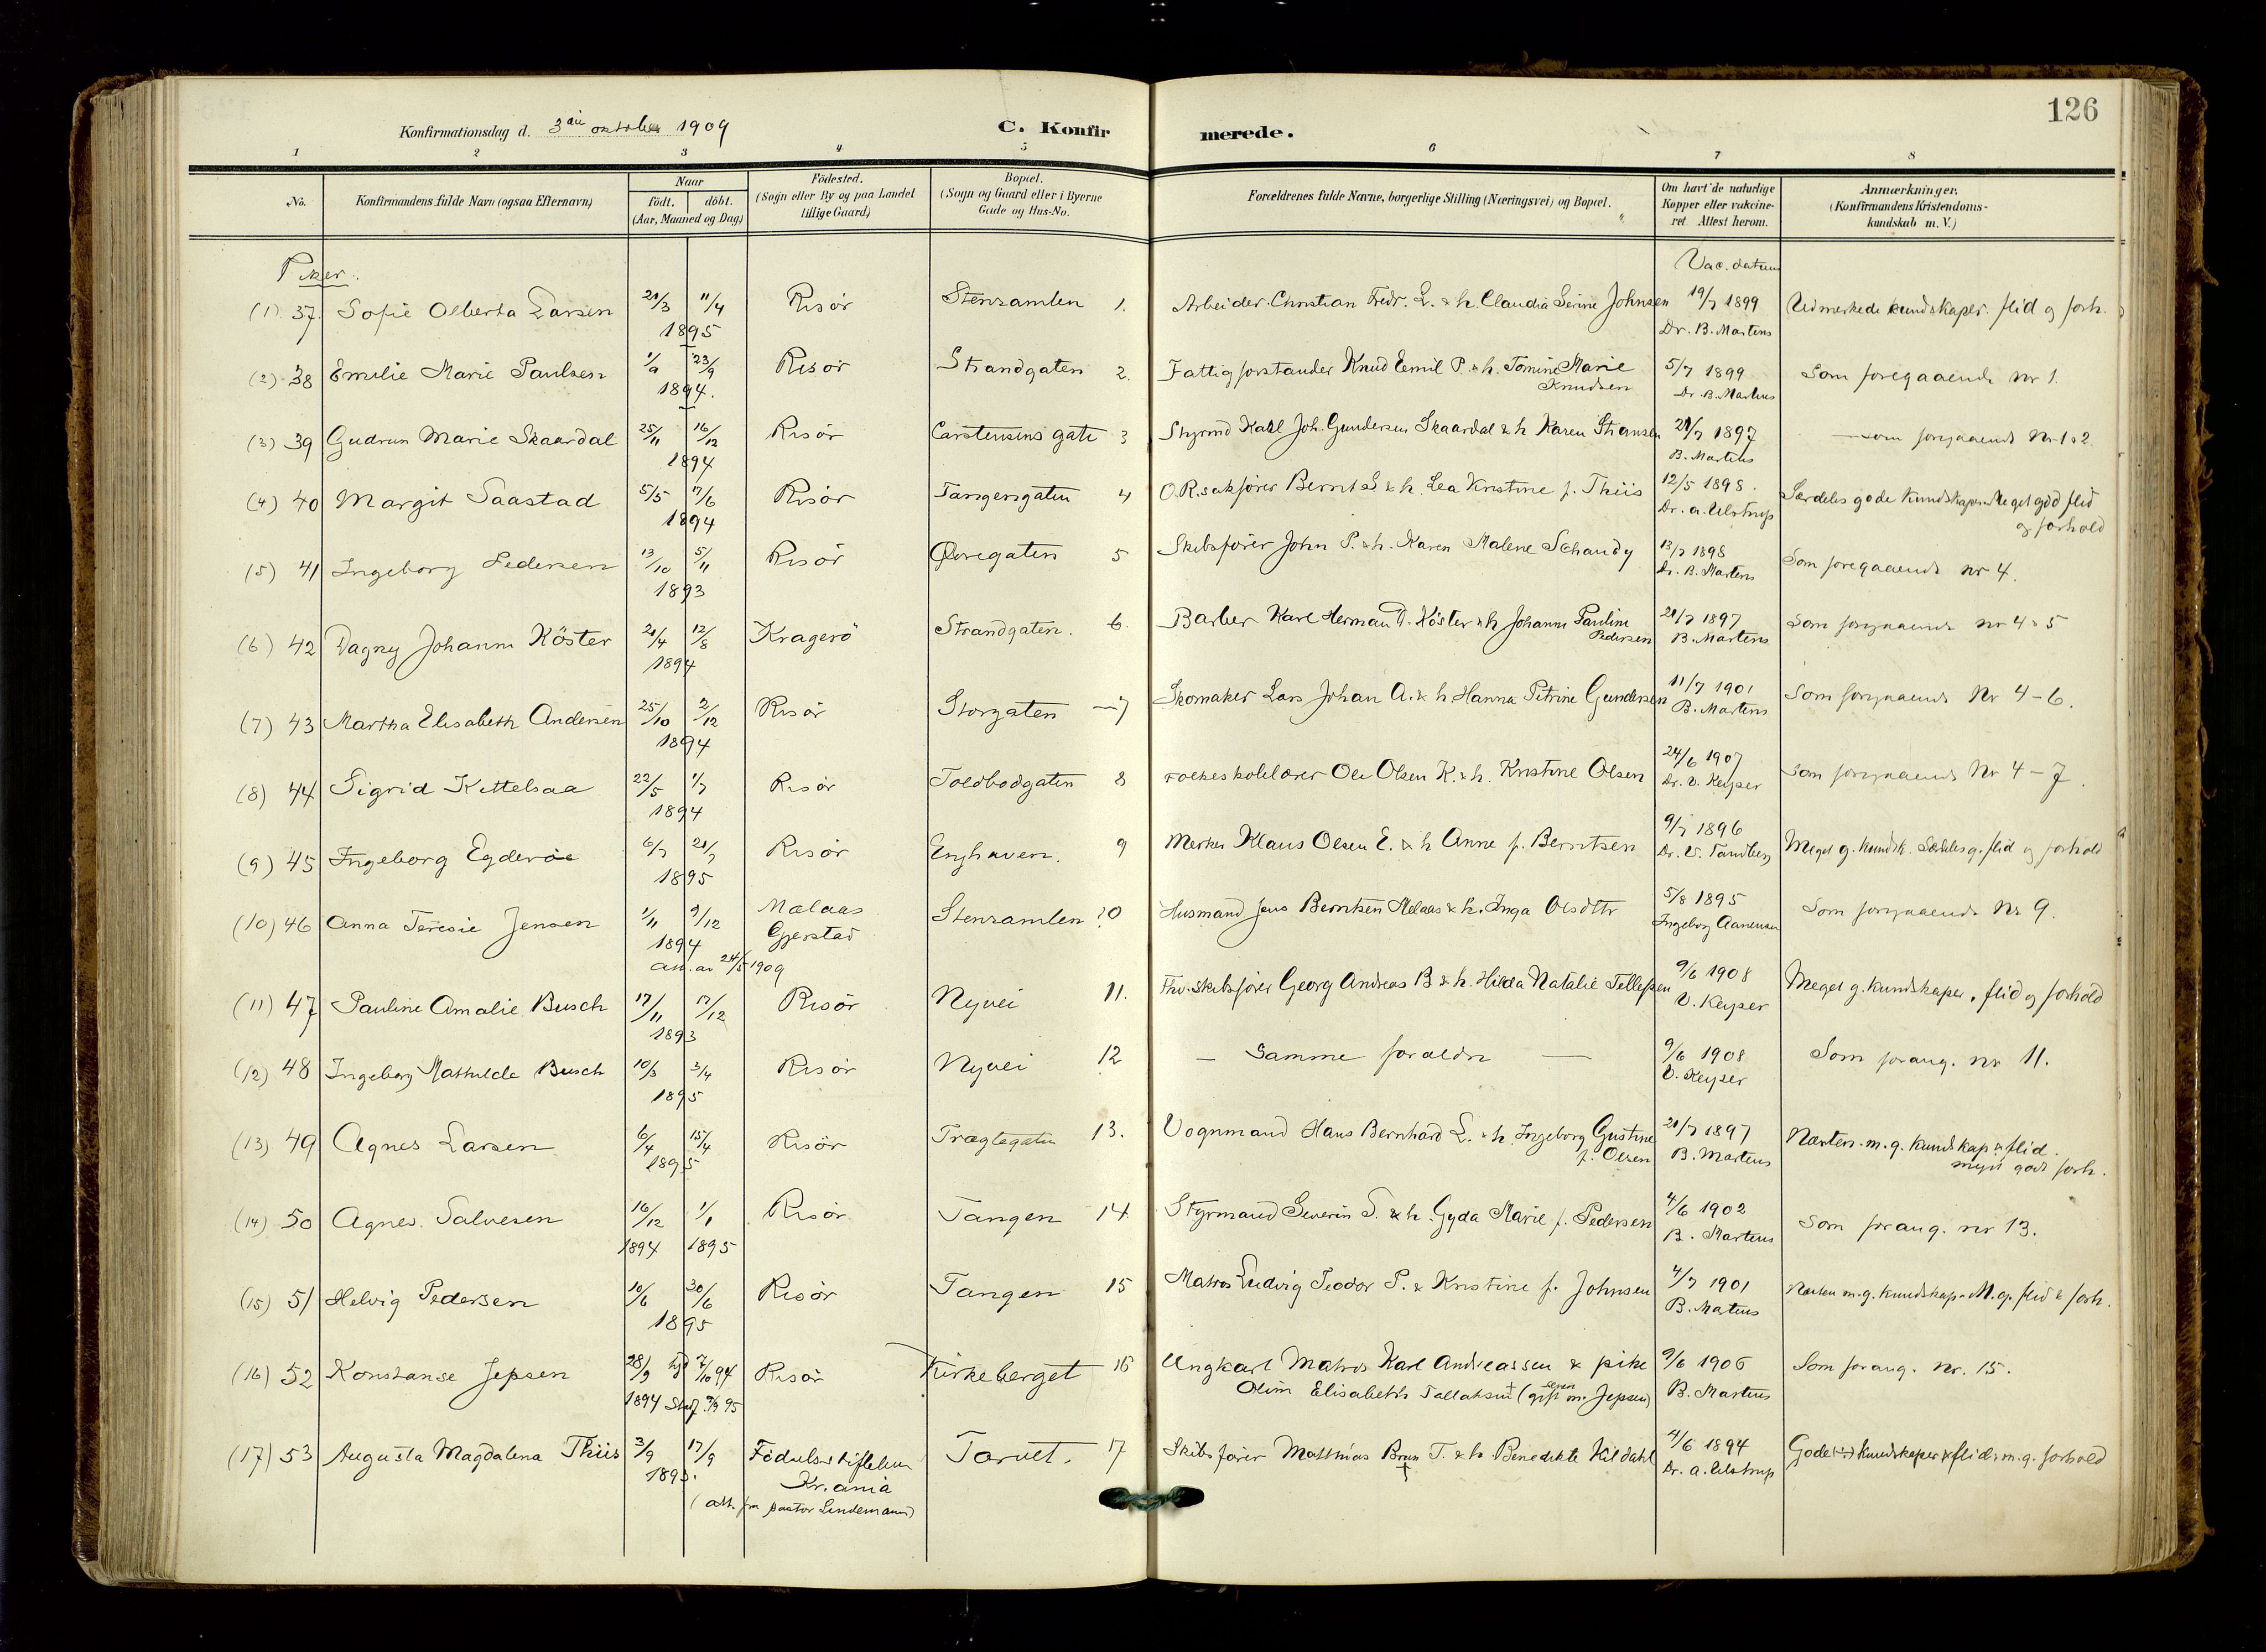 126
Konfirmationsdag d. 3die oktober 1909 C. Konfirmerede.
1 2 3 4 5 6 7 8
No. Konfirmandens fulde Navn (ogsaa Efternavn) Naar født. døbt. (Aar, Maaned og Dag) Fødested. (Sogn eller By og paa Landet tillige Gaard) Bopæl. (Sogn og Gaard eller i Byerne Gade og Hus-No. Forældrenes fulde Navne, borgerlige Stilling (Næringsvei) og Bopæl. Om havt de naturlige Kopper eller vakcineret Attest herom. Anmærkninger. (Konfirmandens Kristendomskundskab m. V.)
Piker. Vac. datum
(1) 37. Sofie Olberta Larsen 21/3 11/4 1895 Risör Stensamlen 1. Arbeider Christian Fredr. L. & h. Claudia Serine Johnsen 19/7 1899 Dr. B. Martens Udmerkede kundskaper. flid og forh.
(2) 38 Emilie Marie Paulsen 1/9 23/9 1894. Risör Strandgaten 2. Fattigforstander Knud Emil P. & h. Tomine Marie Knudsen 5/7 1899 Dr. B. Martens Som foregaaende nr 1.
(3) 39 Gudrun Marie Skaardal 25/11 16/12 1894 Risör Carstensens gate 3 Styrmd Karl Joh. Gundersen Skaardal & h Karen 21/7 1897 B. Martens som foregaaende Nr 1 & 2
(4) 40 Margit Saastad 5/5 17/6 1894 Risör Tangengaten 4 O.R.sakfører Bernt S & h. Lea Kristine f. Thiis 12/5 1898. Dr. A. Ulstrup Særdeles gode kundskaper. Meget god flid og forhold
(5) 41 Ingeborg Pedersen 13/10 5/11 1893 Risör Øvregaten 5 Skibsfører John P. & h. Karen Malene Schandy 13/7 1898 Dr. B. Martens Som foregaaende nr 4.
(6) 42 Dagny Johanne Köster 21/4 12/8 1894 Kragerö Strandgaten. 6. Barber Karl Herman D. Köster & h Johanne Pauline Pedersen 21/7 1897 B. Martens Som foregaaende nr 4 & 5
(7) 43 Martha Elisabeth Andersen 25/10 2/12 1894 Risör Storgaten 7 Skomaker Lars Johan A. & h Hanna Petrine Gundersen 11/7 1901 B. Martens Som foregaaende Nr 4 - 6.
(8) 44 Sigrid Kittelsaa 22/5 1/7 1894 Risör Toldbodgaten 8 Folkeskolelærer Ole Olsen K. & h. Kristine Olsen 24/6 1907 Dr. V. Keyser Som foregaaende Nr 4 - 7.
(9) 45 Ingeborg Egderöe 6/7 21/7 1895 Risör Enghaven. 9 Klaus Olsen E. & h Anne f. Berntsen 9/7 1896 Dr. V. Tandberg Meget g. kundsk. Særdeles g. flid og forhold
(10) 46 Anna Teresie Jensen 1/11 9/12 1894 att. av 24/5 1909 Mælaas Gjerstad Stensamlen 10 Husmand Jens Berntsen Melaas & h. Inga Olsdttr 5/8 1895 Ingeborg Aanensen Som foregaaende Nr 9.
(11) 47 Pauline Amalie Busch 17/11 17/12 1893 Risör Nyvei 11. Fhv. skibsfører Georg Andreas B & h. Hilda Natalie Tellefsen 9/6 1908 V. Keyser Meget g. kundskaper, flid og forhold
(12) 48 Ingeborg Mathilde Busch 10/3 3/4 1895 Risör Nyvei 12 — Samme forældre — 9/6 1908 V. Keyser Som forang. nr 11.
(13) 49 Agnes Larsen 6/4 15/4 1895 Risör Tragtegaten 13. Vognmand Hans Bernhard L. & h. Ingeborg Gustine f. Olsen 21/7 1897 B. Martens Næsten m. g. kundskap & flid. meget godt forh.
(14) 50 Agnes Salvesen 16/12 1894 1/1 1895 Risör Tangen 14 Styrmand Severin S. & h. Gyda Marie f. Pedersen 4/6 1902 B. Martens Som forang. nr 13.
(15) 51 Helvig Pedersen 10/6 30/6 1895 Risör Tangen 15 Matros Ludvig Teodor P. & Kristine f. Johnsen 4/7 1901 B. Martens Næsten m. g. kundskap. M. g. flid & forh.
(16) 52 Konstanse Jepsen 28/9 1894 7/10 94 Risör Kirkeberget 16 Ungkarl Matros Karl Andreassen & pike Olim Elisabeth Tallaksen (gift m. Jepsen) 9/6 1906 B. Martens Som forang. nr. 15.
(17) 53 Augusta Magdalena Thiis 3/9 17/9 1893. Fødselsstiftelsen Kr.ania (att. fra pastor Lindemann) Torvet. 17 Skibsfører Matthias Brun T. & h Benedikte Kildahl 4/6 1894 Dr. A. Ulstrup Gode kundskaper & flid. m. g. forhold